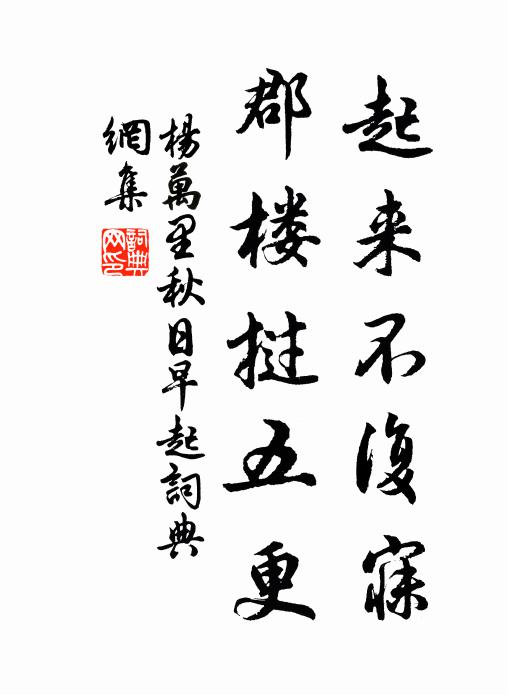 起来不復寐
郡楼挝五更
楊萬里秋日早起詞典
網集
詞典
网印